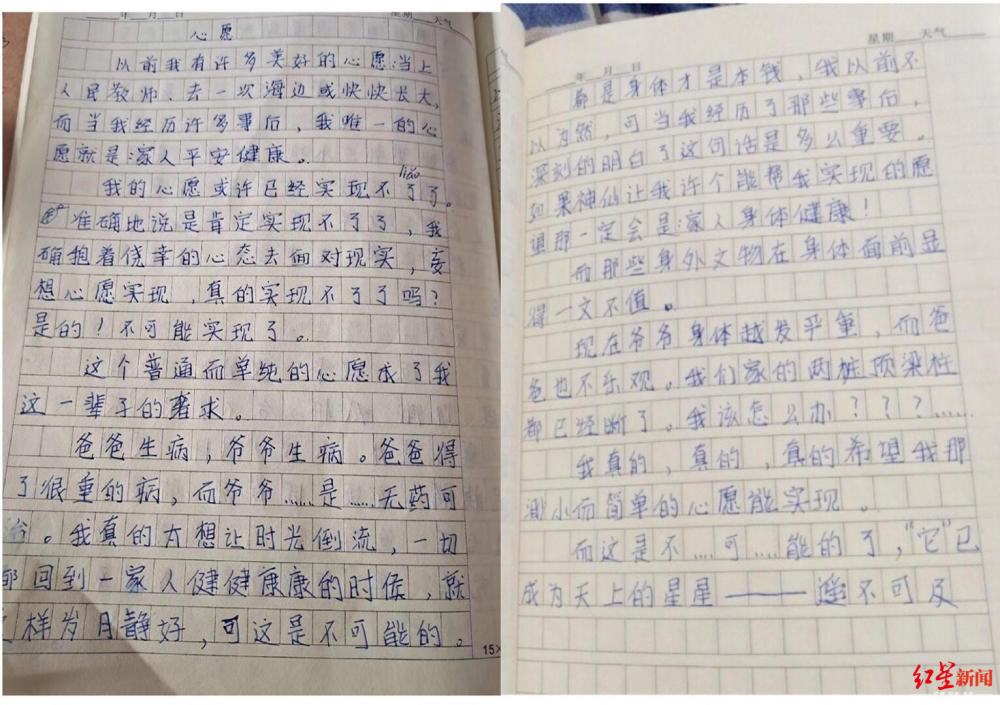 年 月 日 星期 天气
心愿
以前我有许多美好的心愿:当上
人民教师、去一次海边或快快长大,
而当我经历许多事后,我唯一的心
愿就是:家人平安健康。
我的心愿或许已经实现不了了。
liǎo
准确地说是肯定实现不了了,我
确抱着侥幸的心态去面对现实,妄
想心愿实现,真的实现不了了吗?
是的!不可能实现了。
这个普通而单纯的心愿成了我
这一辈子的奢求。
爸爸生病,爷爷生病。爸爸得
了很重的病,而爷爷……是……无药可
治。我真的太想让时光倒流,一切
都回到一家人健健康康的时侯,就
这样岁月静好,可这是不可能的。
15×
年 月 日 星期 天气
都是身体才是本钱,我以前不
以为然,可当我经历了那些事后,
深刻的明白了这句话是多么重要。
如果神仙让我许个能帮我实现的愿
望那一定会是:家人身体健康!
而那些身外文物在身体面前显
得一文不值。
现在爷爷身体越发严重,而爸
爸也不乐观。我们家的两桩顶梁柱
都已经断了。我该怎么办???……
我真的,真的,真的希望我那
渺小而简单的心愿能实现。
而这是不……可……能的了,"它"已
成为天上的星星——遥不可及
红星新闻